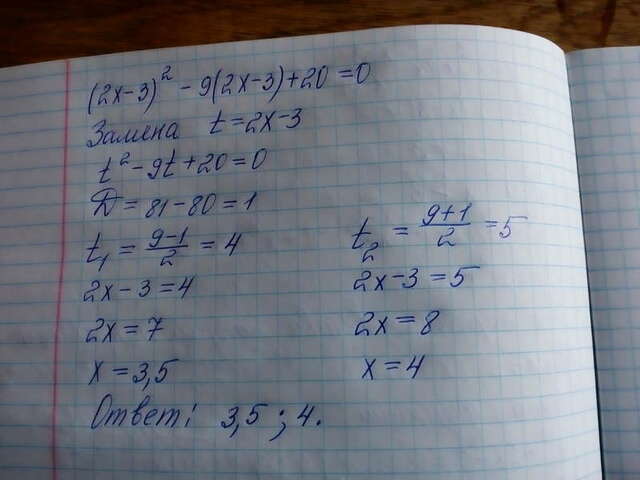 (2x-3)² - 9(2x-3)+20=0
Замена t=2x-3
t²-9t+20=0
D=81-80=1
t₁ = (9-1)/2 = 4
2x-3=4
2x=7
x=3,5
t₂ = (9+1)/2 =5
2x-3=5
2x=8
x=4
Ответ: 3,5; 4.